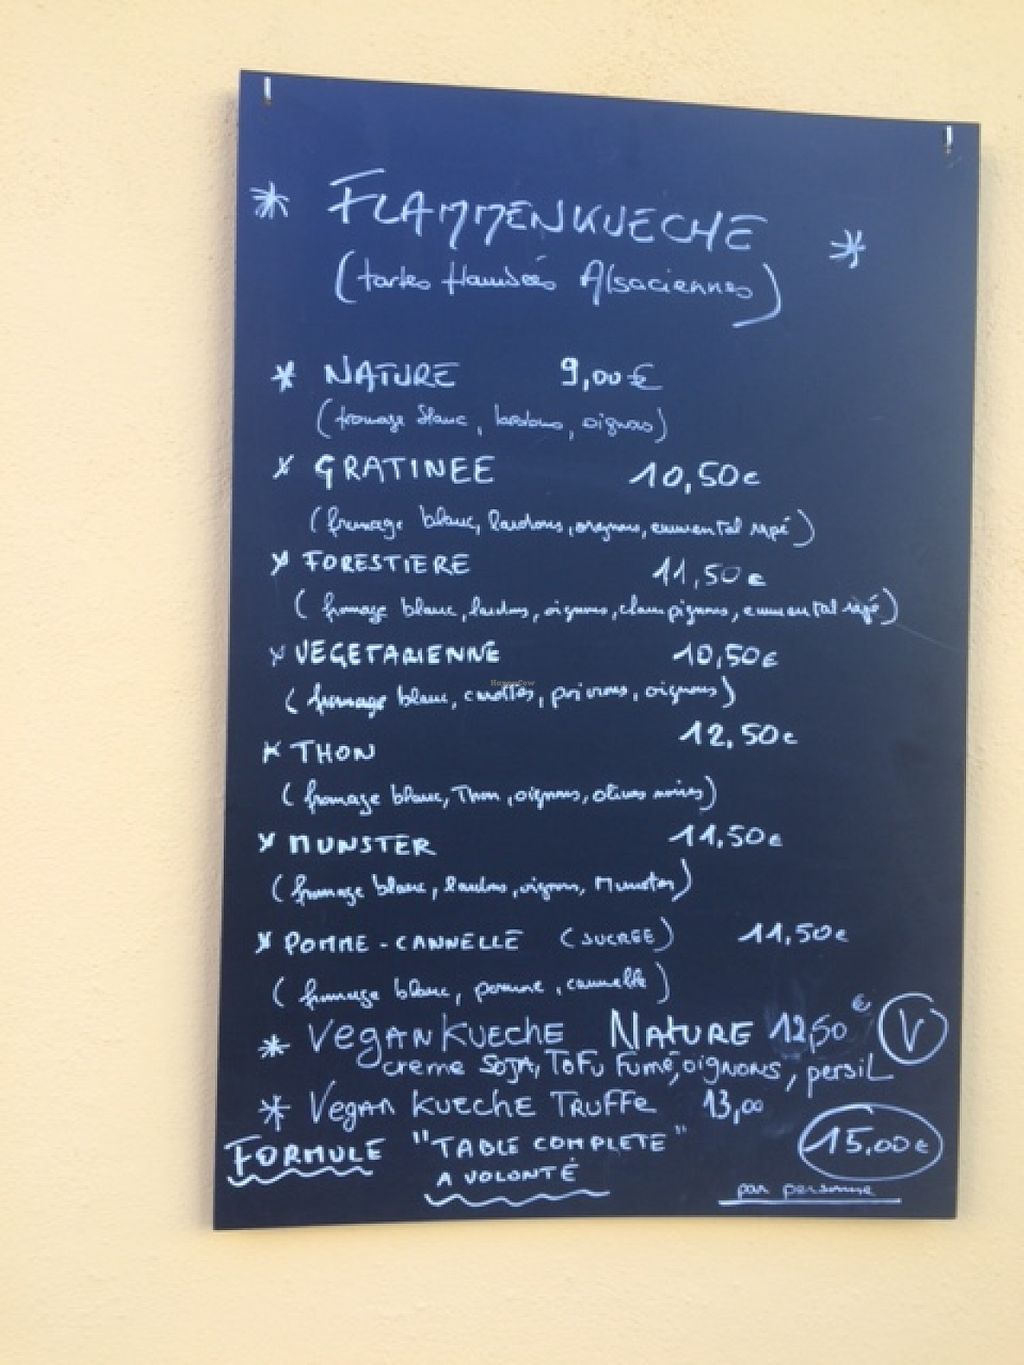 * FLAMMENKUECHE *
(tartes flambées Alsaciennes)
* NATURE 9,00€
(fromage blanc, lardons, oignons)
x GRATINEE 10,50€
(fromage blanc, lardons, oignons, emmental rapé)
x FORESTIERE 11,50€
(fromage blanc, lardons, oignons, champignons, emmental rapé)
x VEGETARIENNE 10,50€
(fromage blanc, carottes, poivrons, oignons)
x THON 12,50€
(fromage blanc, Thon, oignons, olives noires)
x MUNSTER 11,50€
(fromage blanc, lardons, oignons, Munster)
x POMME-CANNELLE (SUCREE) 11,50€
(fromage blanc, pomme, cannelle)
* Vegan KUECHE NATURE 12,50€ V
creme SOJA, TOFU Fumé, oignons, persiL
* Vegan KUECHE TRUFFe 13,00
FORMULE "TABLE COMPLETE" 15.00€
A VOLONTÉ par personne
HappyCow